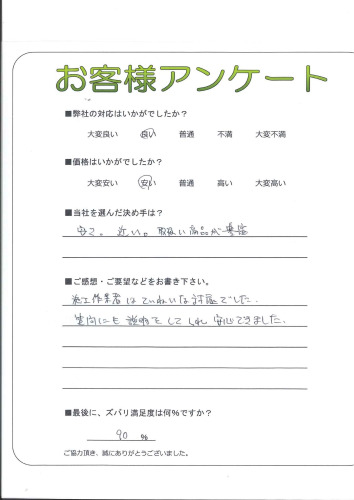 お客様アンケート
■弊社の対応はいかがでしたか?
大変良い 良い 普通 不満 大変不満
■価格はいかがでしたか?
大変安い 安い 普通 高い 大変高い
■当社を選んだ決め手は?
安さ。近い。取扱い商品が豊富
■ご感想・ご要望などをお書き下さい。
施工作業者はていねいな対応でした.
質問にも説明をしてくれ安心できました.
■最後に、ズバリ満足度は何%ですか?
90 %
ご協力頂き、誠にありがとうございました。